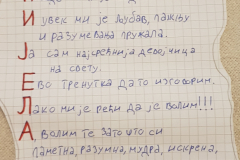 И увек ми је љубав, пажњу
и разумевања пружала.
Ја сам најсрећнија девојчица
на свету.
Ево тренутка да то изговорим.
Лако ми је рећи да је волим!!!
А волим те зато што си
паметна, разумна, мудра, искрена,